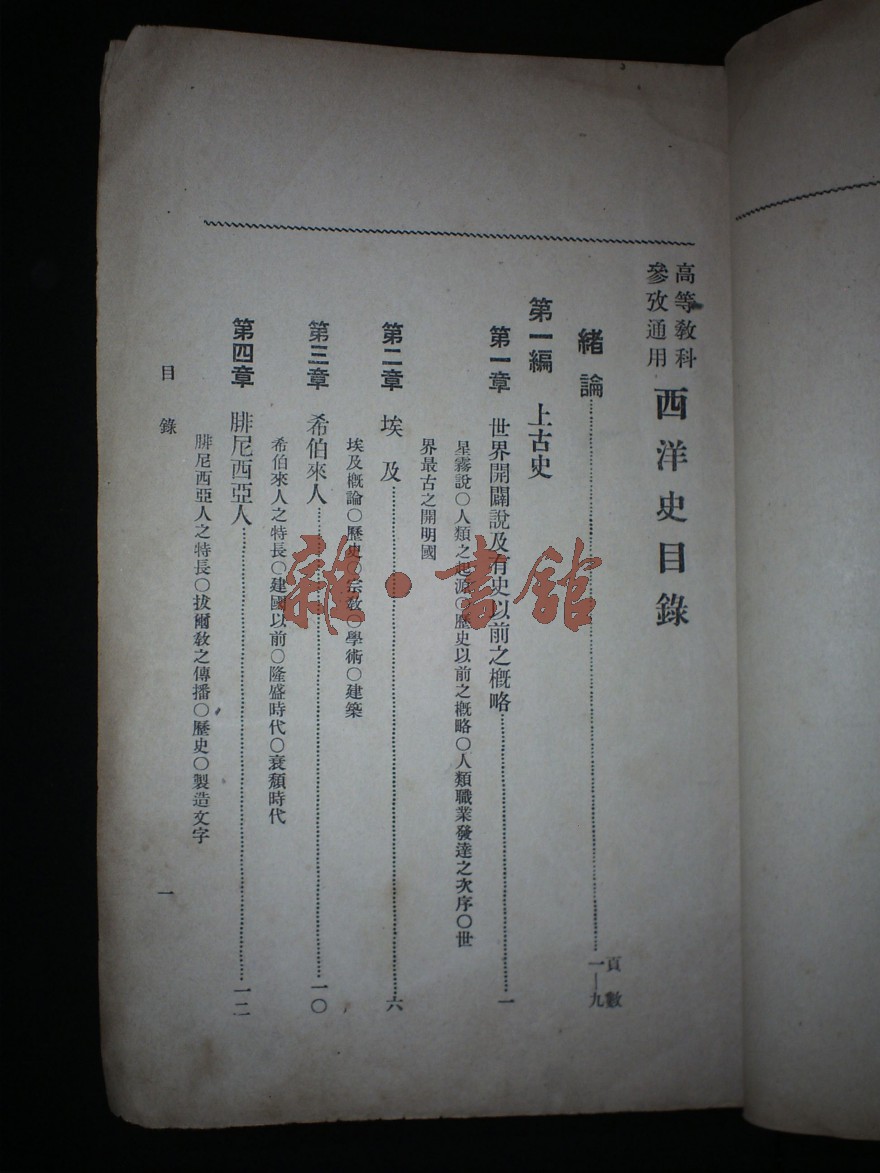 高等教科
參攷通用
西洋史目錄
頁數
緒論…………一—九
第一編 上古史
第一章 世界開闢說及有史以前之概略…………一
星霧說○人類之起源○歷史以前之概略○人類職業發達之次序○世
界最古之開明國
第二章 埃及…………六
埃及概論○歷史○宗教○學術○建築
第三章 希伯來人…………一〇
希伯來人之特長○建國以前○隆盛時代○衰頹時代
第四章 腓尼西亞人…………一二
腓尼西亞人之特長○拔爾敎之傳播○歷史○製造文字
目錄
一
雜·書館